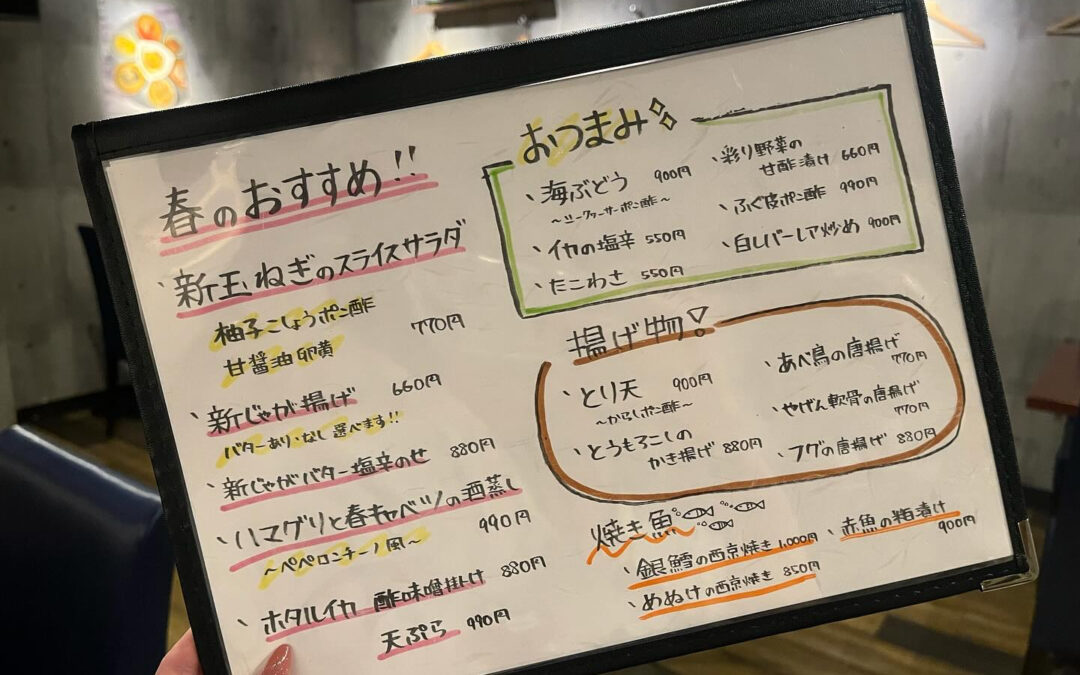 春のおすすめ!!
・新玉ねぎのスライスサラダ
柚子こしょうポン酢
甘醤油卵黄
770円
・新じゃが揚げ 660円
バターあり・なし選べます!!
・新じゃがバター塩辛のせ 880円
・ハマグリと春キャベツの酒蒸し
～ペペロンチーノ風～ 990円
・ホタルイカ 酢味噌掛け 880円
天ぷら 990円
おつまみ
・海ぶどう 900円
～シークァーサーポン酢～
・イカの塩辛 550円
・たこわさ 550円
・彩り野菜の
甘酢漬け 660円
・ふぐ皮ポン酢 990円
・白レバーレア炒め 900円
揚げ物!
・とり天 900円
～からしポン酢～
・とうもろこしの
かき揚げ 880円
・あべ鳥の唐揚げ
770円
・やげん軟骨の唐揚げ
770円
・フグの唐揚げ 880円
焼き魚
・銀鱈の西京焼き 1,000円
・めぬけの西京焼き 850円
・赤魚の粕漬け
900円